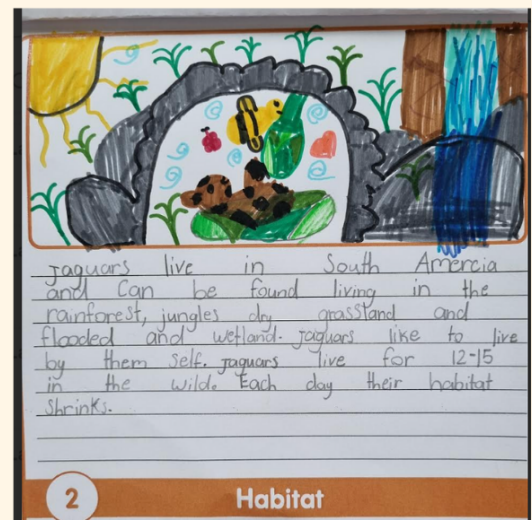 Jaguars live in South Amercia
and Can be found living in the
rainforest, jungles dry grasstand and
flooded and wetland. jaguars like to live
by them self. jaguars live for 12-15
in the wild. Each day their habitat
Shrinks.
2
Habitat